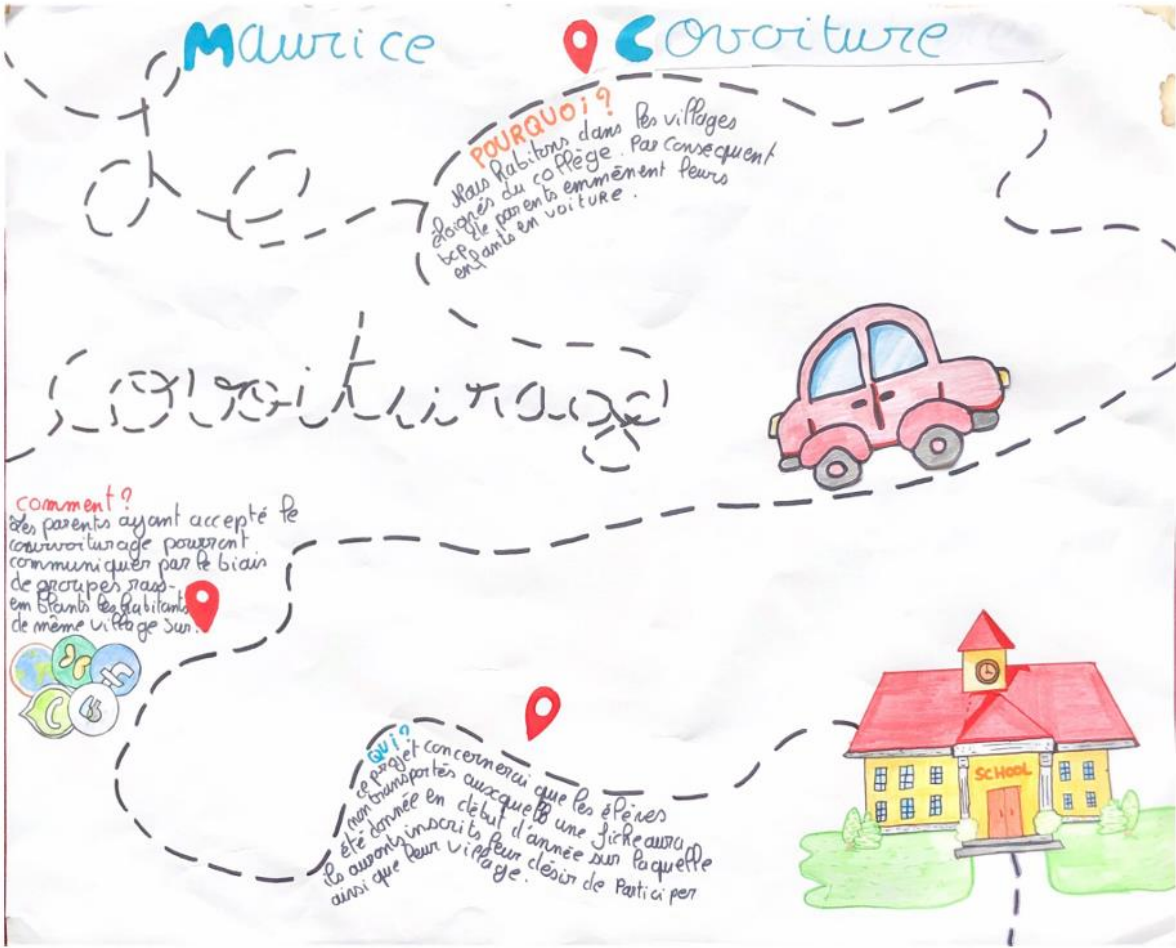 Maurice Covoiture
de
Covoiturage
POURQUOI?
Nous habitons dans les villages
éloignés du collège. Par conséquent
bcp de parents emmènent leurs
enfants en voiture.
comment?
Les parents ayant accepté le
pourront
communiquer par le biais
de groupes rass-
emblants les habitants
de même village sur:
QUI?
ce projet concernerai que les élèves
non transportés auxquels une fiche aura
été donnée en début d'année sur laquelle
ils auront inscrits leur désir de Participer
ainsi que leur village.
SCHOOL